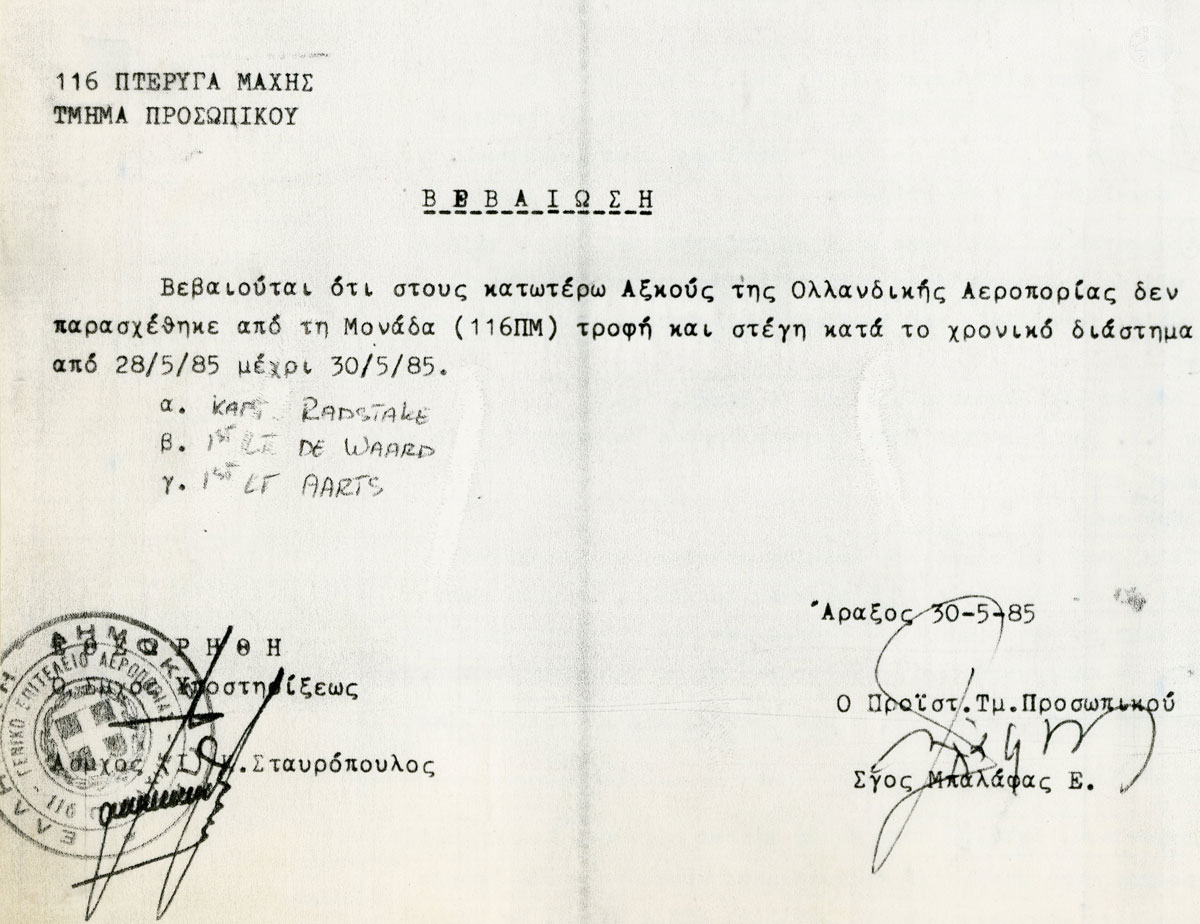 116 ΠΤΕΡΥΓΑ ΜΑΧΗΣ
ΤΜΗΜΑ ΠΡΟΣΩΠΙΚΟΥ
Β Ε Β Α Ι Ω Σ Η
Βεβαιούται ότι στους κατωτέρω Αξκούς της Ολλανδικής Αεροπορίας δεν
παρασχέθηκε από τη Μονάδα (116ΠΜ) τροφή και στέγη κατά το χρονικό διάστημα
από 28/5/85 μέχρι 30/5/85.
α. KAPT RADSTAKE
β. 1ST LT DE WAARD
γ. 1ST LT AARTS
Άραξος 30-5-85
Ε Θ Ε Ω Ρ Η Θ Η
Ο Σμχος Υποστηρίξεως
Ο Προϊστ.Τμ.Προσωπικού
Ασμχος Κ.Σταυρόπουλος
Σγος Μπαλάφας Ε.
ΓΕΝΙΚΟ ΕΠΙΤΕΛΕΙΟ ΑΕΡΟΠΟΡΙΑΣ
116